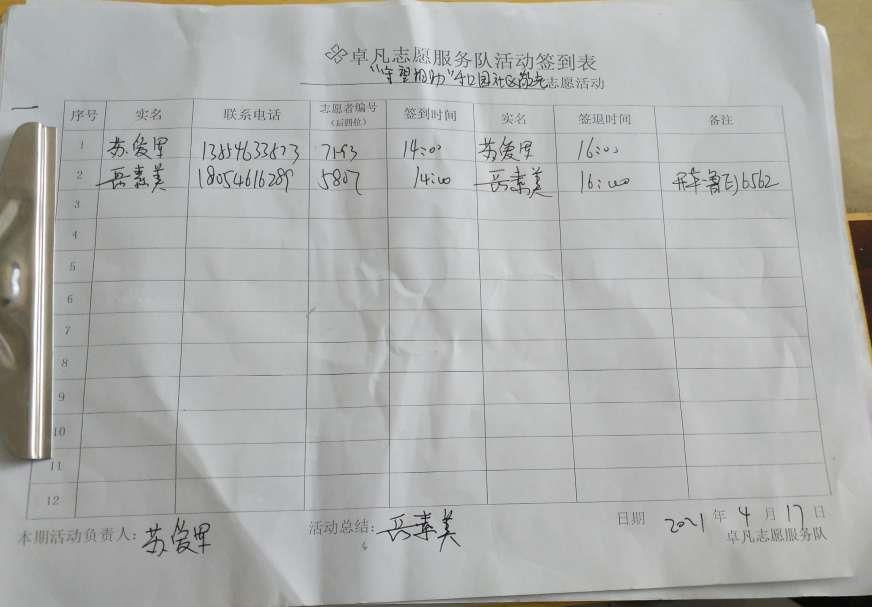 卓凡志愿服务队活动签到表
"守望相助"和园社区敬老志愿活动
序号 实名 联系电话 志愿者编号(后四位) 签到时间 实名 签退时间 备注
1 苏爱军 13854633873 7193 14:00 苏爱军 16:00
2 岳素美 18054616289 5807 14:00 岳素美 16:00 开车鲁EJ6562
3
4
5
6
7
8
9
10
11
12
本期活动负责人:苏爱军 活动总结:岳素美 日期 2021年4月17日
卓凡志愿服务队